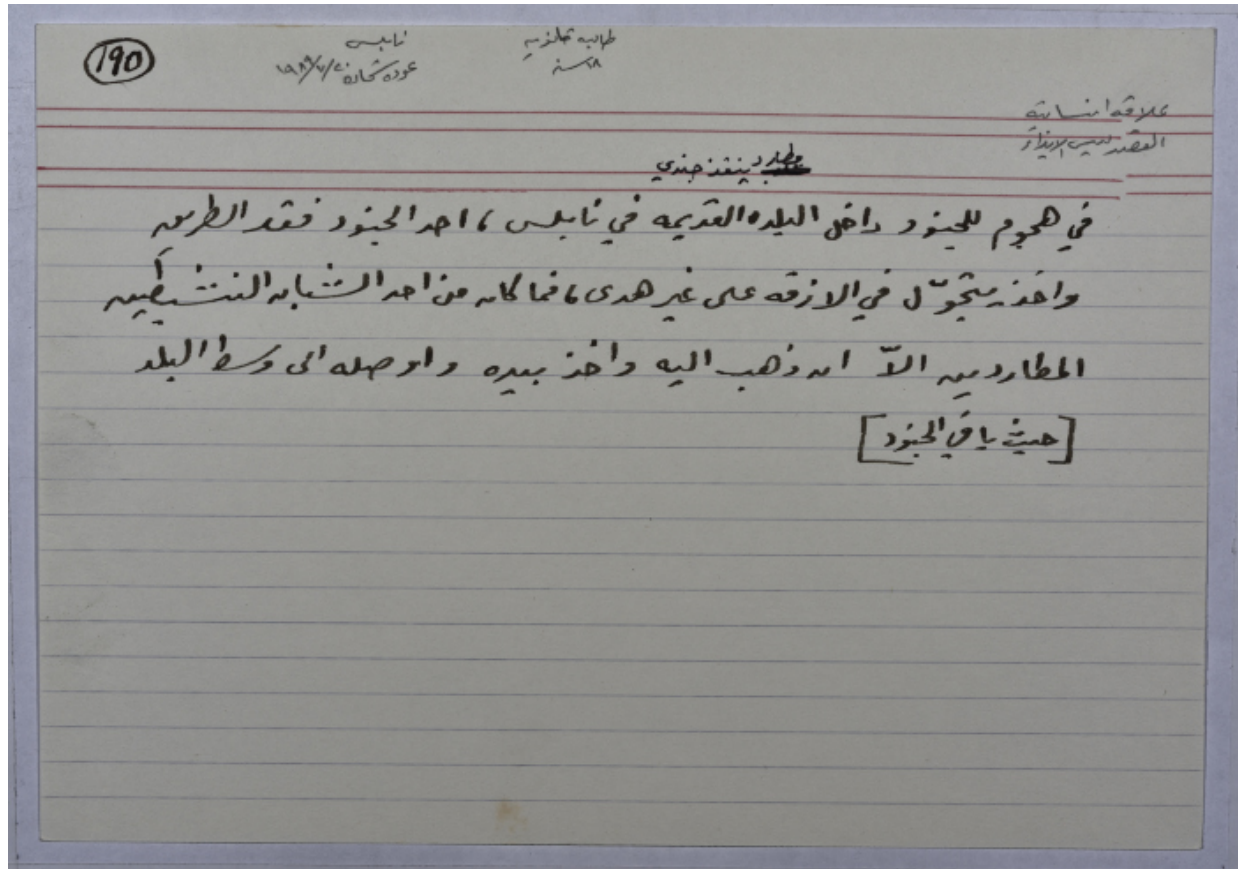 190
طالبه ثانويه
١٨ سنه
نابلس
عوده شحاده
علاقه انسانية
القصد ليس الايذاء
مطارد ينقذ جندي
في هجوم للجنود داخل البلده القديمه في نابلس ، احد الجنود فقد الطريق
واخذ يتجوّل في الازقه على غير هدى ، فما كان من احد الشبان النشيطين
المطاردين الاّ ان ذهب اليه واخذ بيده واوصله الى وسط البلد
[حيث باقي الجنود]